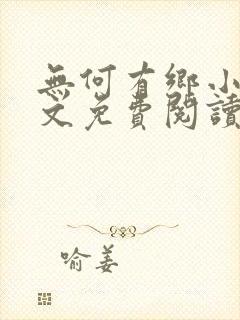 無何有鄉小
文免費閱讀
喻姜